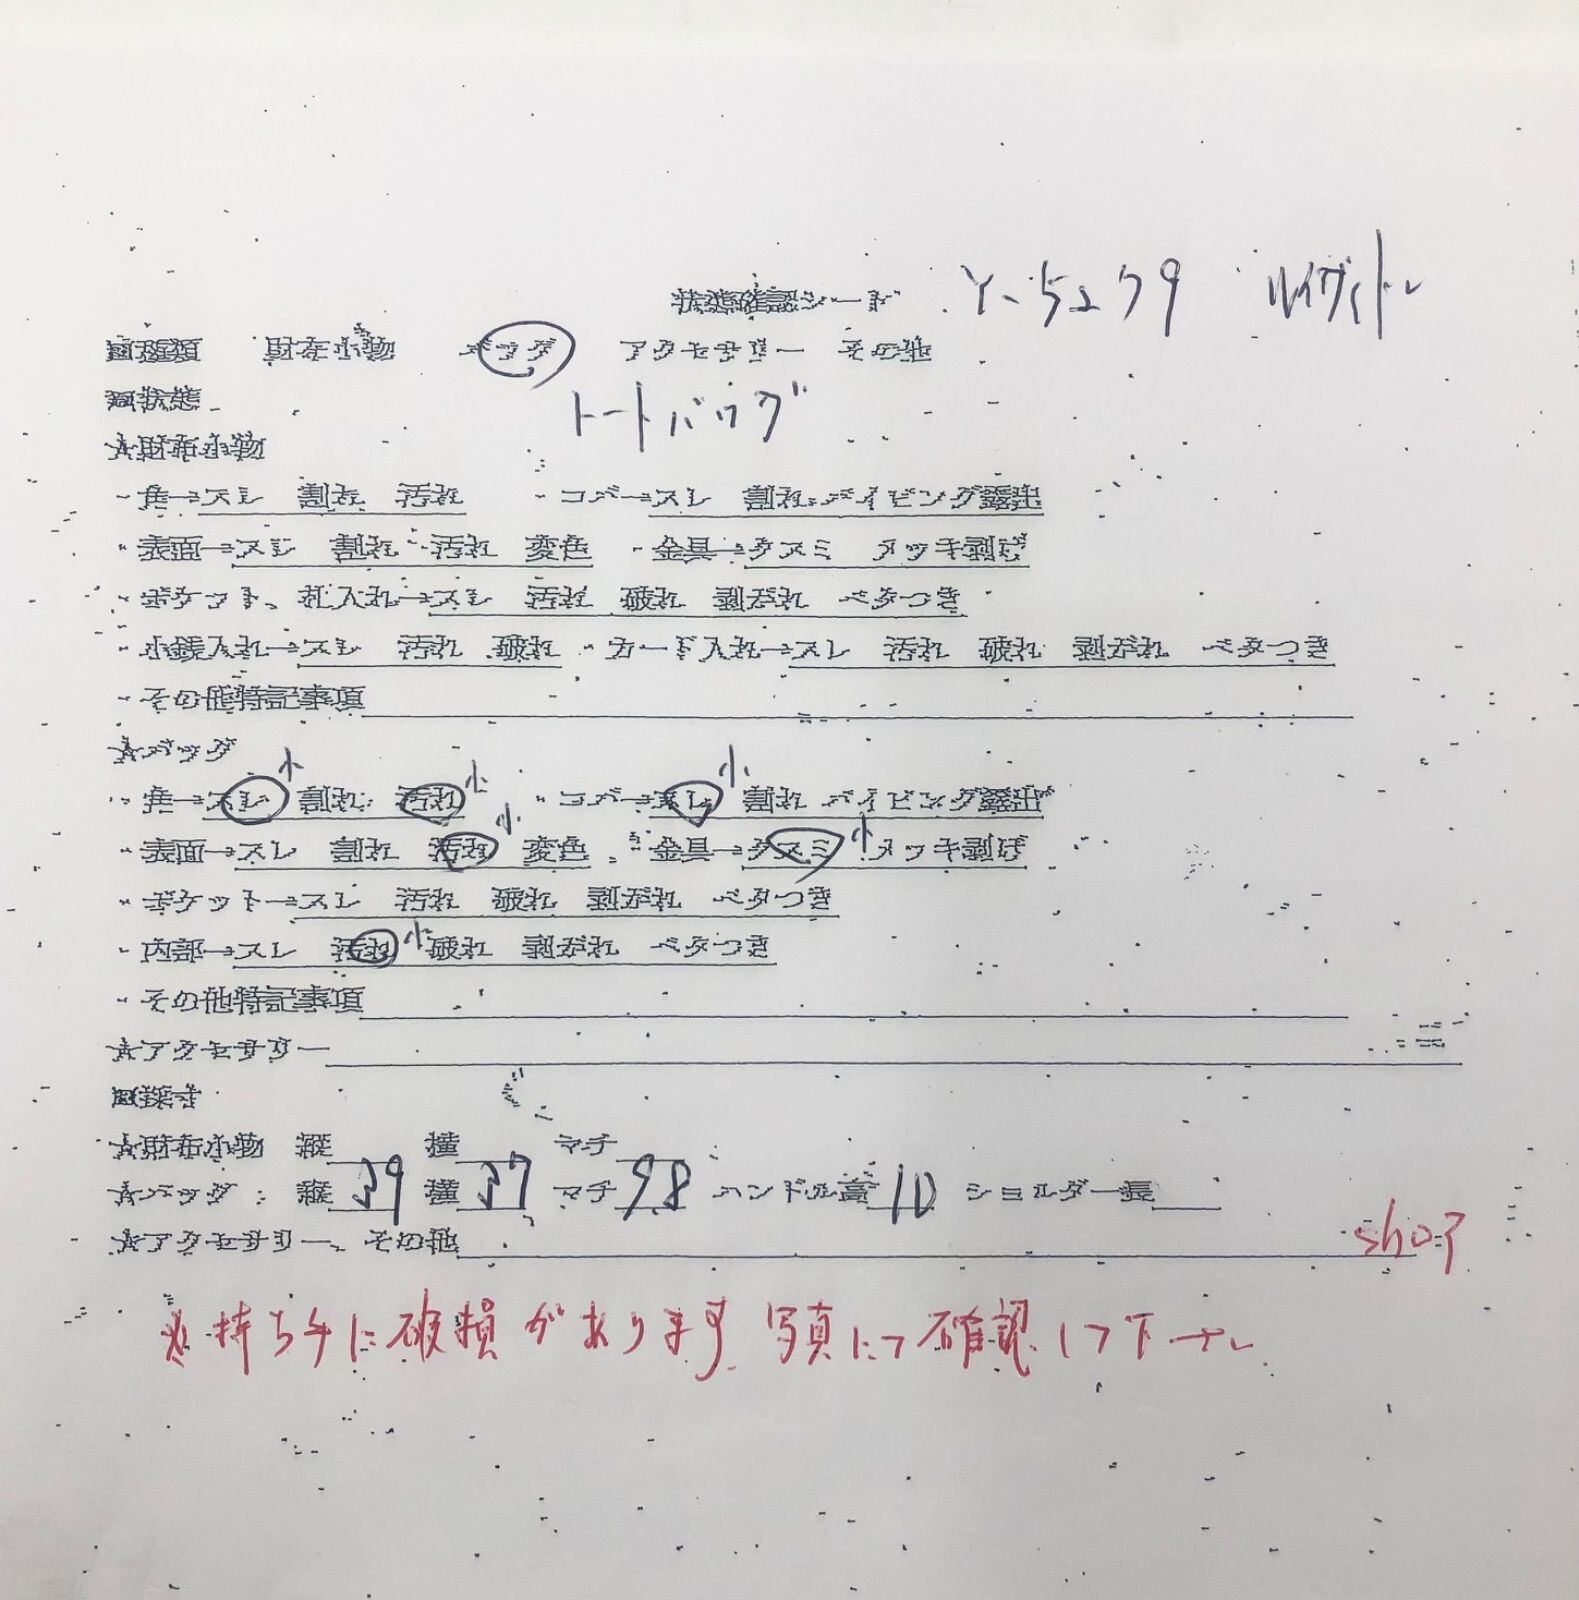 状態確認シート Y-5279 ルイヴィトン
□種類 財布小物 バッグ アクセサリー その他
□状態 トートバッグ
★財布小物
・角→スレ 割れ 汚れ ・コバ→スレ 割れ パイピング露出
・表面→スレ 割れ 汚れ 変色 ・金具→クスミ メッキ剥げ
・ポケット、札入れ→スレ 汚れ 破れ 剥がれ ベタつき
・小銭入れ→スレ 汚れ 破れ ・カード入れ→スレ 汚れ 破れ 剥がれ ベタつき
・その他特記事項
★バッグ
・角→スレ 小 割れ 汚れ 小 ・コバ→スレ 小 割れ パイピング露出
・表面→スレ 割れ 汚れ 小 変色 ・金具→クスミ 小 メッキ剥げ
・ポケット→スレ 汚れ 破れ 剥がれ ベタつき
・内部→スレ 汚れ 小 破れ 剥がれ ベタつき
・その他特記事項
★アクセサリー
□採寸
★財布小物 縦 横 マチ
★バッグ 縦 39 横 37 マチ 98 ハンドル高 10 ショルダー長
★アクセサリー、その他
※持ち手に破損があります 写真にて確認して下さい